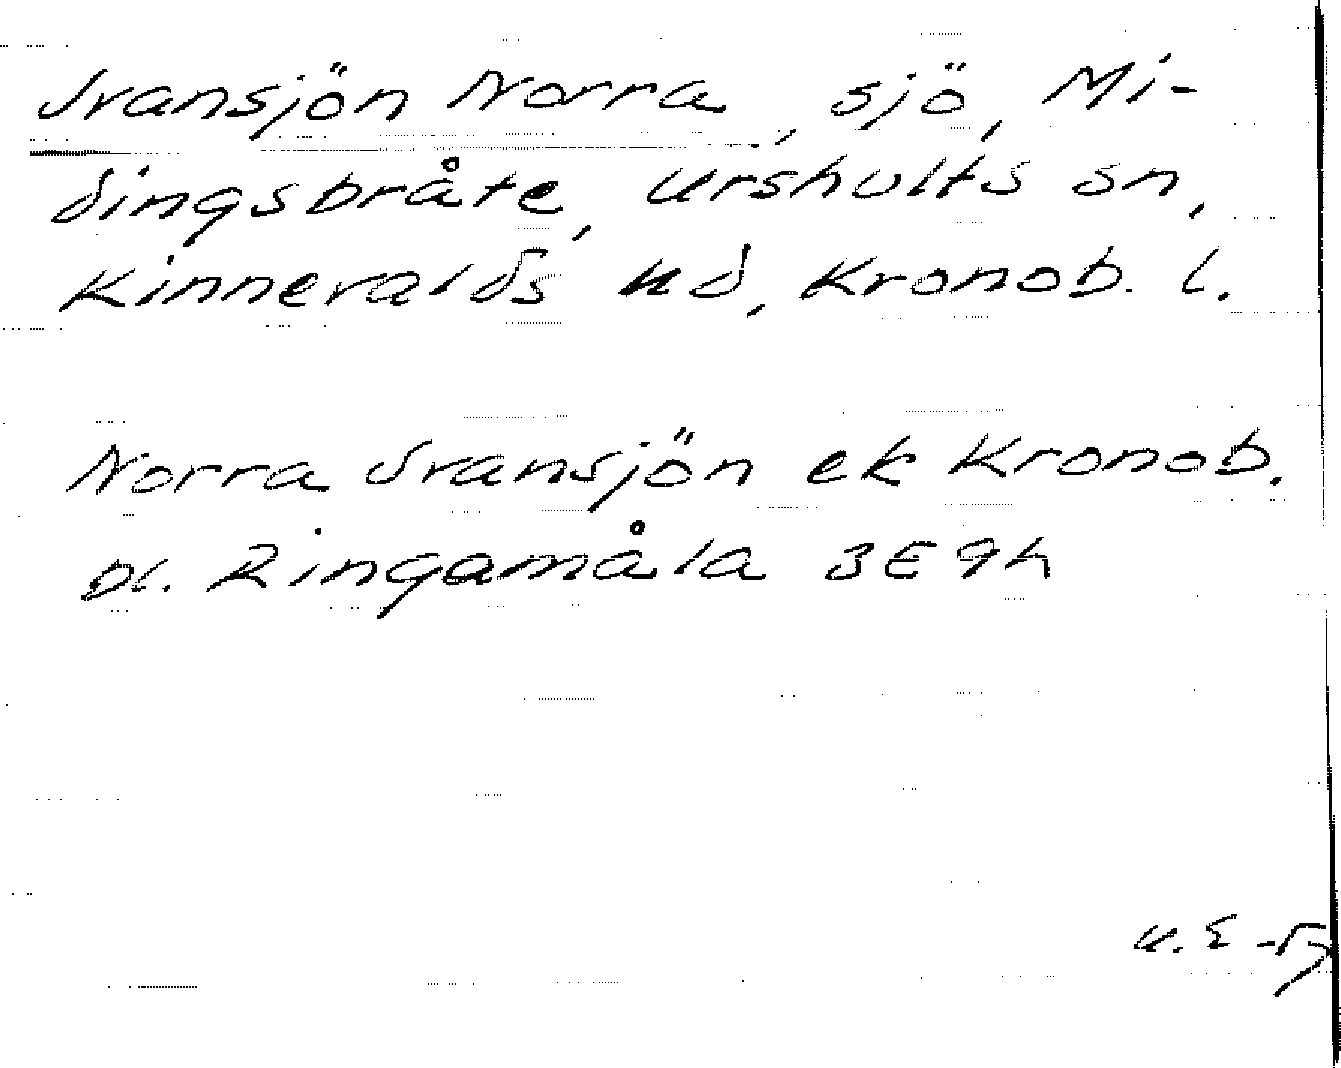 Svansjön Norra, sjö, Mi-
dingsbråte, Urshults sn,
Kinnevalds hd, Kronob. l.
Norra Svansjön ek Kronob.
bl. Ringamåla 3E 9h
U. E